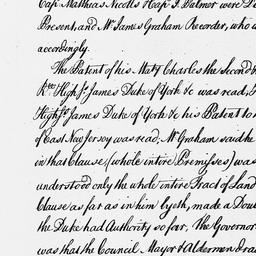 Capt Matthias Nicolls Capt J. Palmer were
Present, and Mr James Graham Recorder, who
accordingly.
The Patent of his Maty Charles the Second
Rll High. Js. James Duke of York &c was read,
Highss James Duke of York &c his Patent to
of East New Jersey was read, Mr Graham said he
in that Clause (whole intire Premisses) was
understood only the whole intire Tract of Land
Clause as far as in him lyeth, made a Dou
the Duke had Authority so far, The Governor
was that the Council, Mayor & Aldermen dra